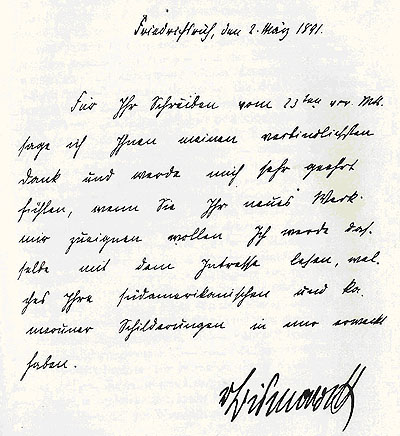 Friedrichsruh, den 2. März 1891.
Für Ihr Schreiben vom 23ten vor. Mts.
sage ich Ihnen meinen verbindlichsten
Dank und werde mich sehr geehrt
fühlen, wenn Sie Ihr neues Werk
mir zueignen wollen Ich werde das-
selbe mit dem Interesse lesen, wel-
ches Ihre südamerikanischen und Ka-
meruner Schilderungen in mir erweckt
haben.
v Bismarck